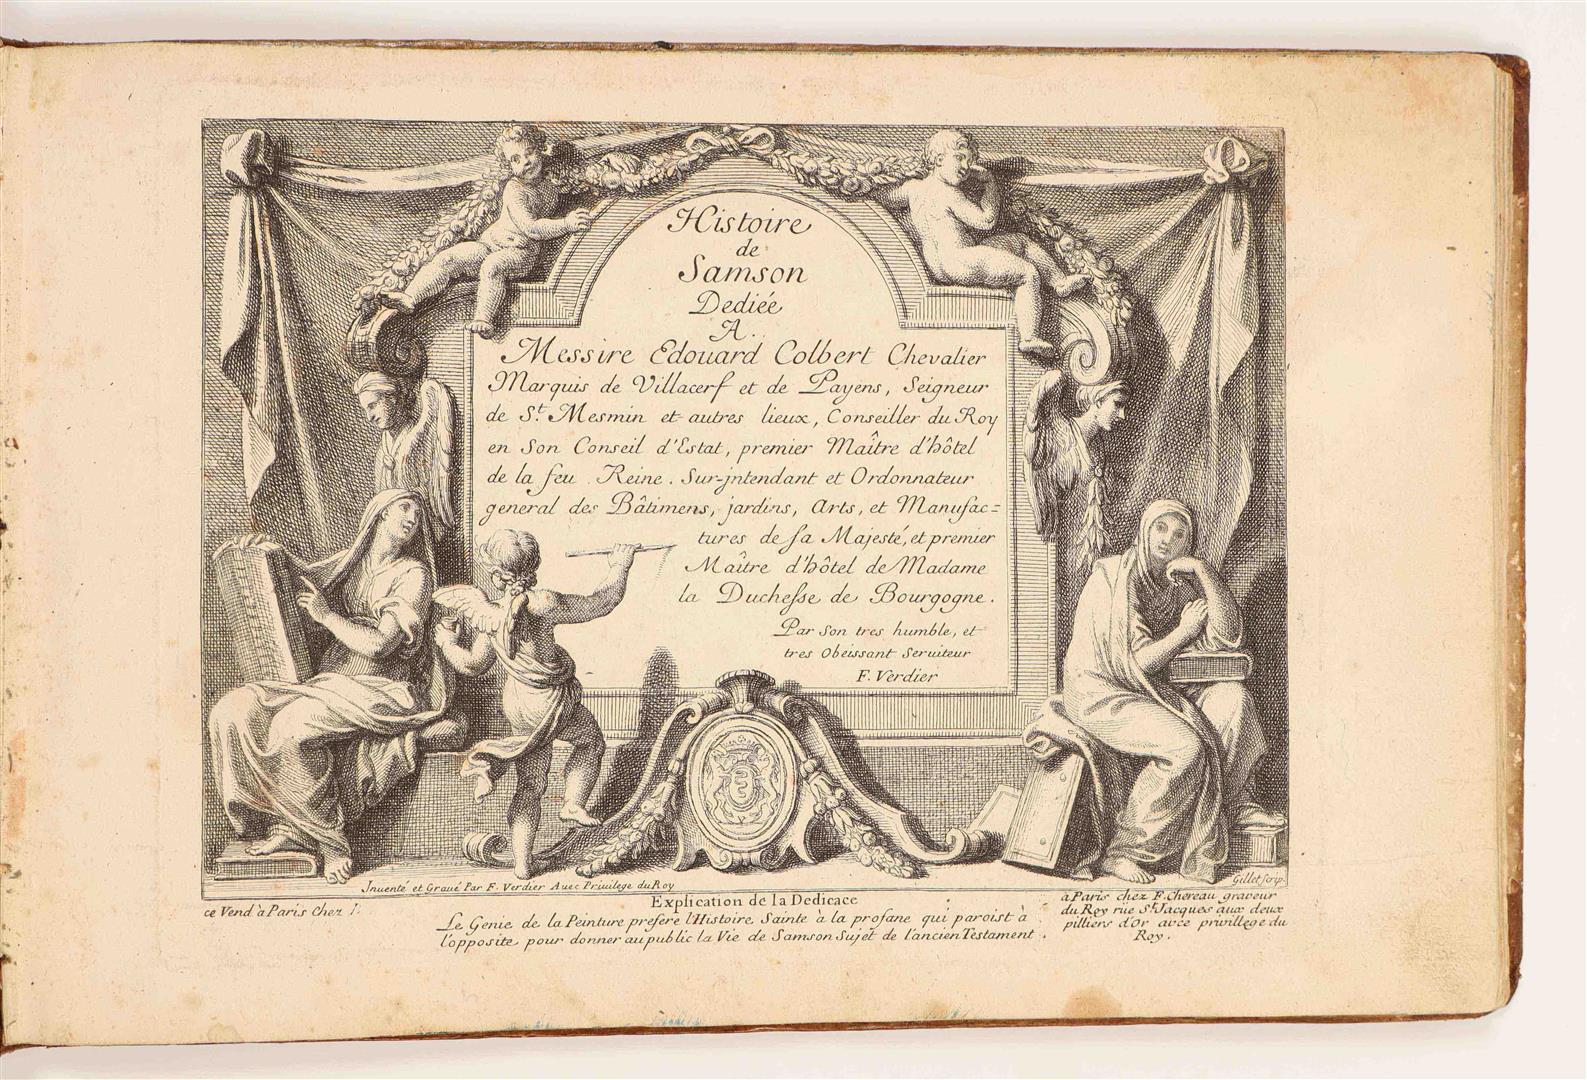 Histoire
de
Samson
Dediée
A.
Messire Edouard Colbert Chevalier
Marquis de Villacerf et de Payens, Seigneur
de St. Mesmin et autres lieux, Conseiller du Roy
en Son Conseil d'Estat, premier Maître d'hôtel
de la feu Reine. Sur-jntendant et Ordonnateur
general des Bâtimens, jardins, Arts, et Manufac=
tures de sa Majesté, et premier
Maître d'hôtel de Madame
la Duchesse de Bourgogne.
Par Son tres humble, et
tres Obeissant Seruiteur
F. Verdier
Inuenté et Gravé Par F. Verdier Avec Priuilege du Roy
Gillet scrip.
ce Vend à Paris Chez
Explication de la Dedicace
Le Genie de la Peinture prefere l'Histoire Sainte à la profane qui paroist à
l'opposite pour donner au public la Vie de Samson Sujet de l'ancien Testament.
à Paris chez F. Chereau graveur
du Roy rue St. Jacques aux deux
pilliers d'Or avce privillege du
Roy.